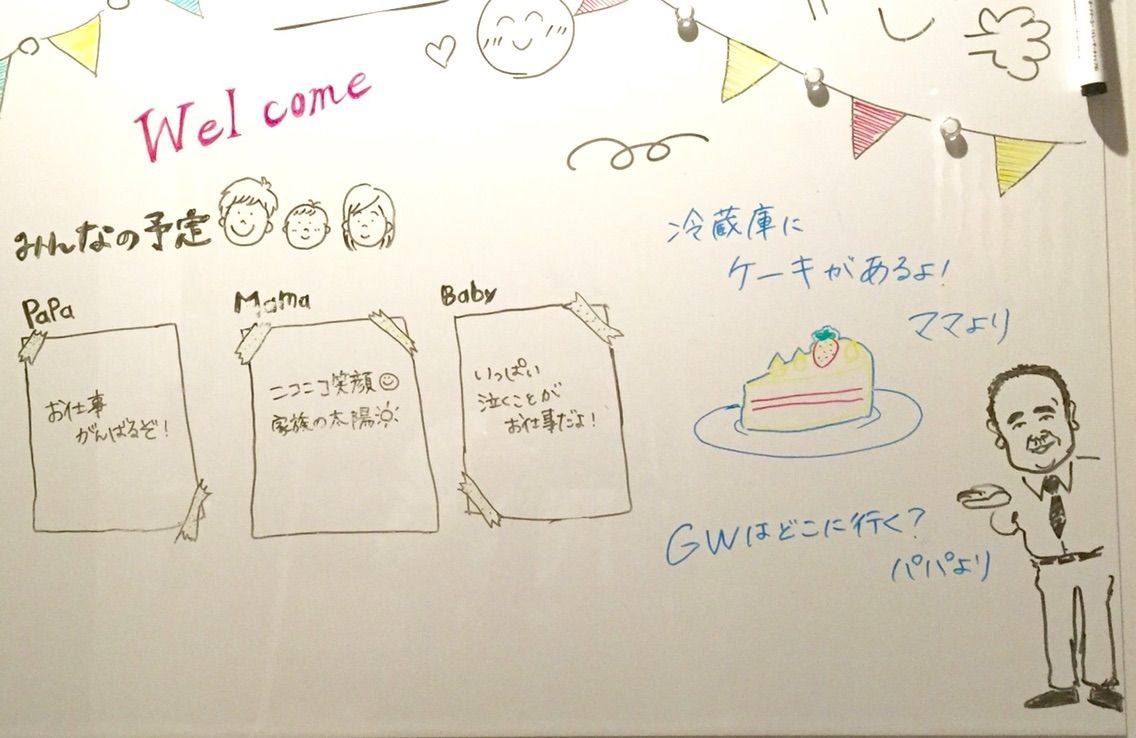 Welcome
みんなの予定
PaPa
お仕事
がんばるぞ!
Mama
ニコニコ笑顔
家族の太陽
Baby
いっぱい
泣くことが
お仕事だよ!
冷蔵庫に
ケーキがあるよ!
ママより
GWはどこに行く?
パパより